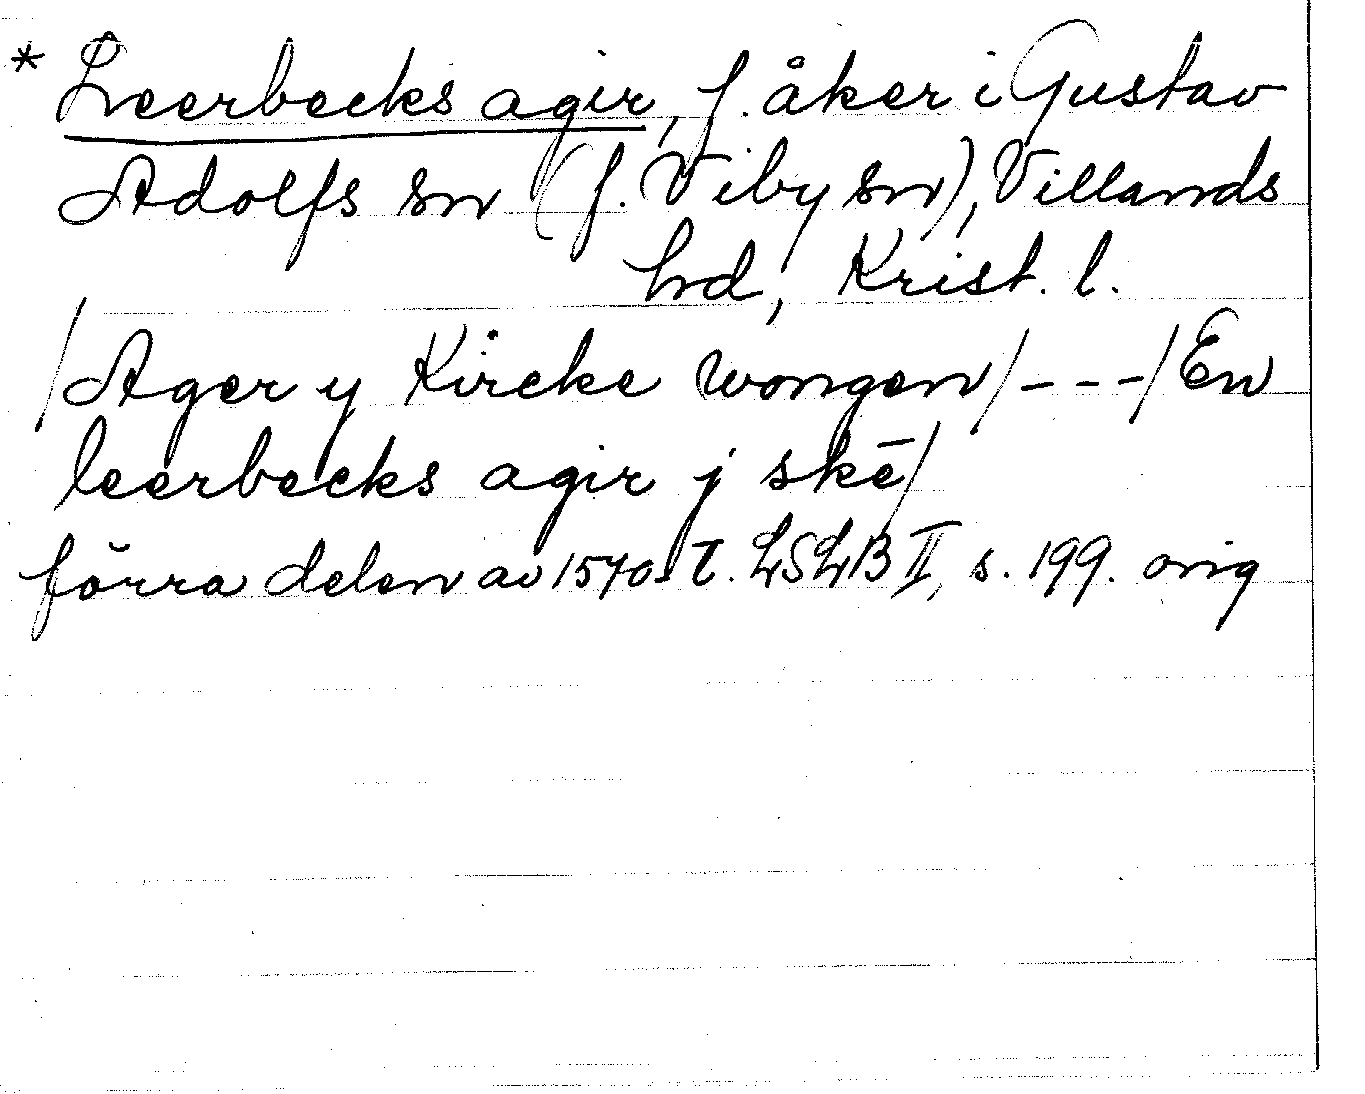 * Leerbecks agir, f. åker i Gustav
Adolfs sn (f. Viby sn), Villands
hd, Krist. l.
/Ager y Kircke wongen/---/En
leerbecks agir j skē/
förra delen av 1570-t. LSLB II, s. 199. orig